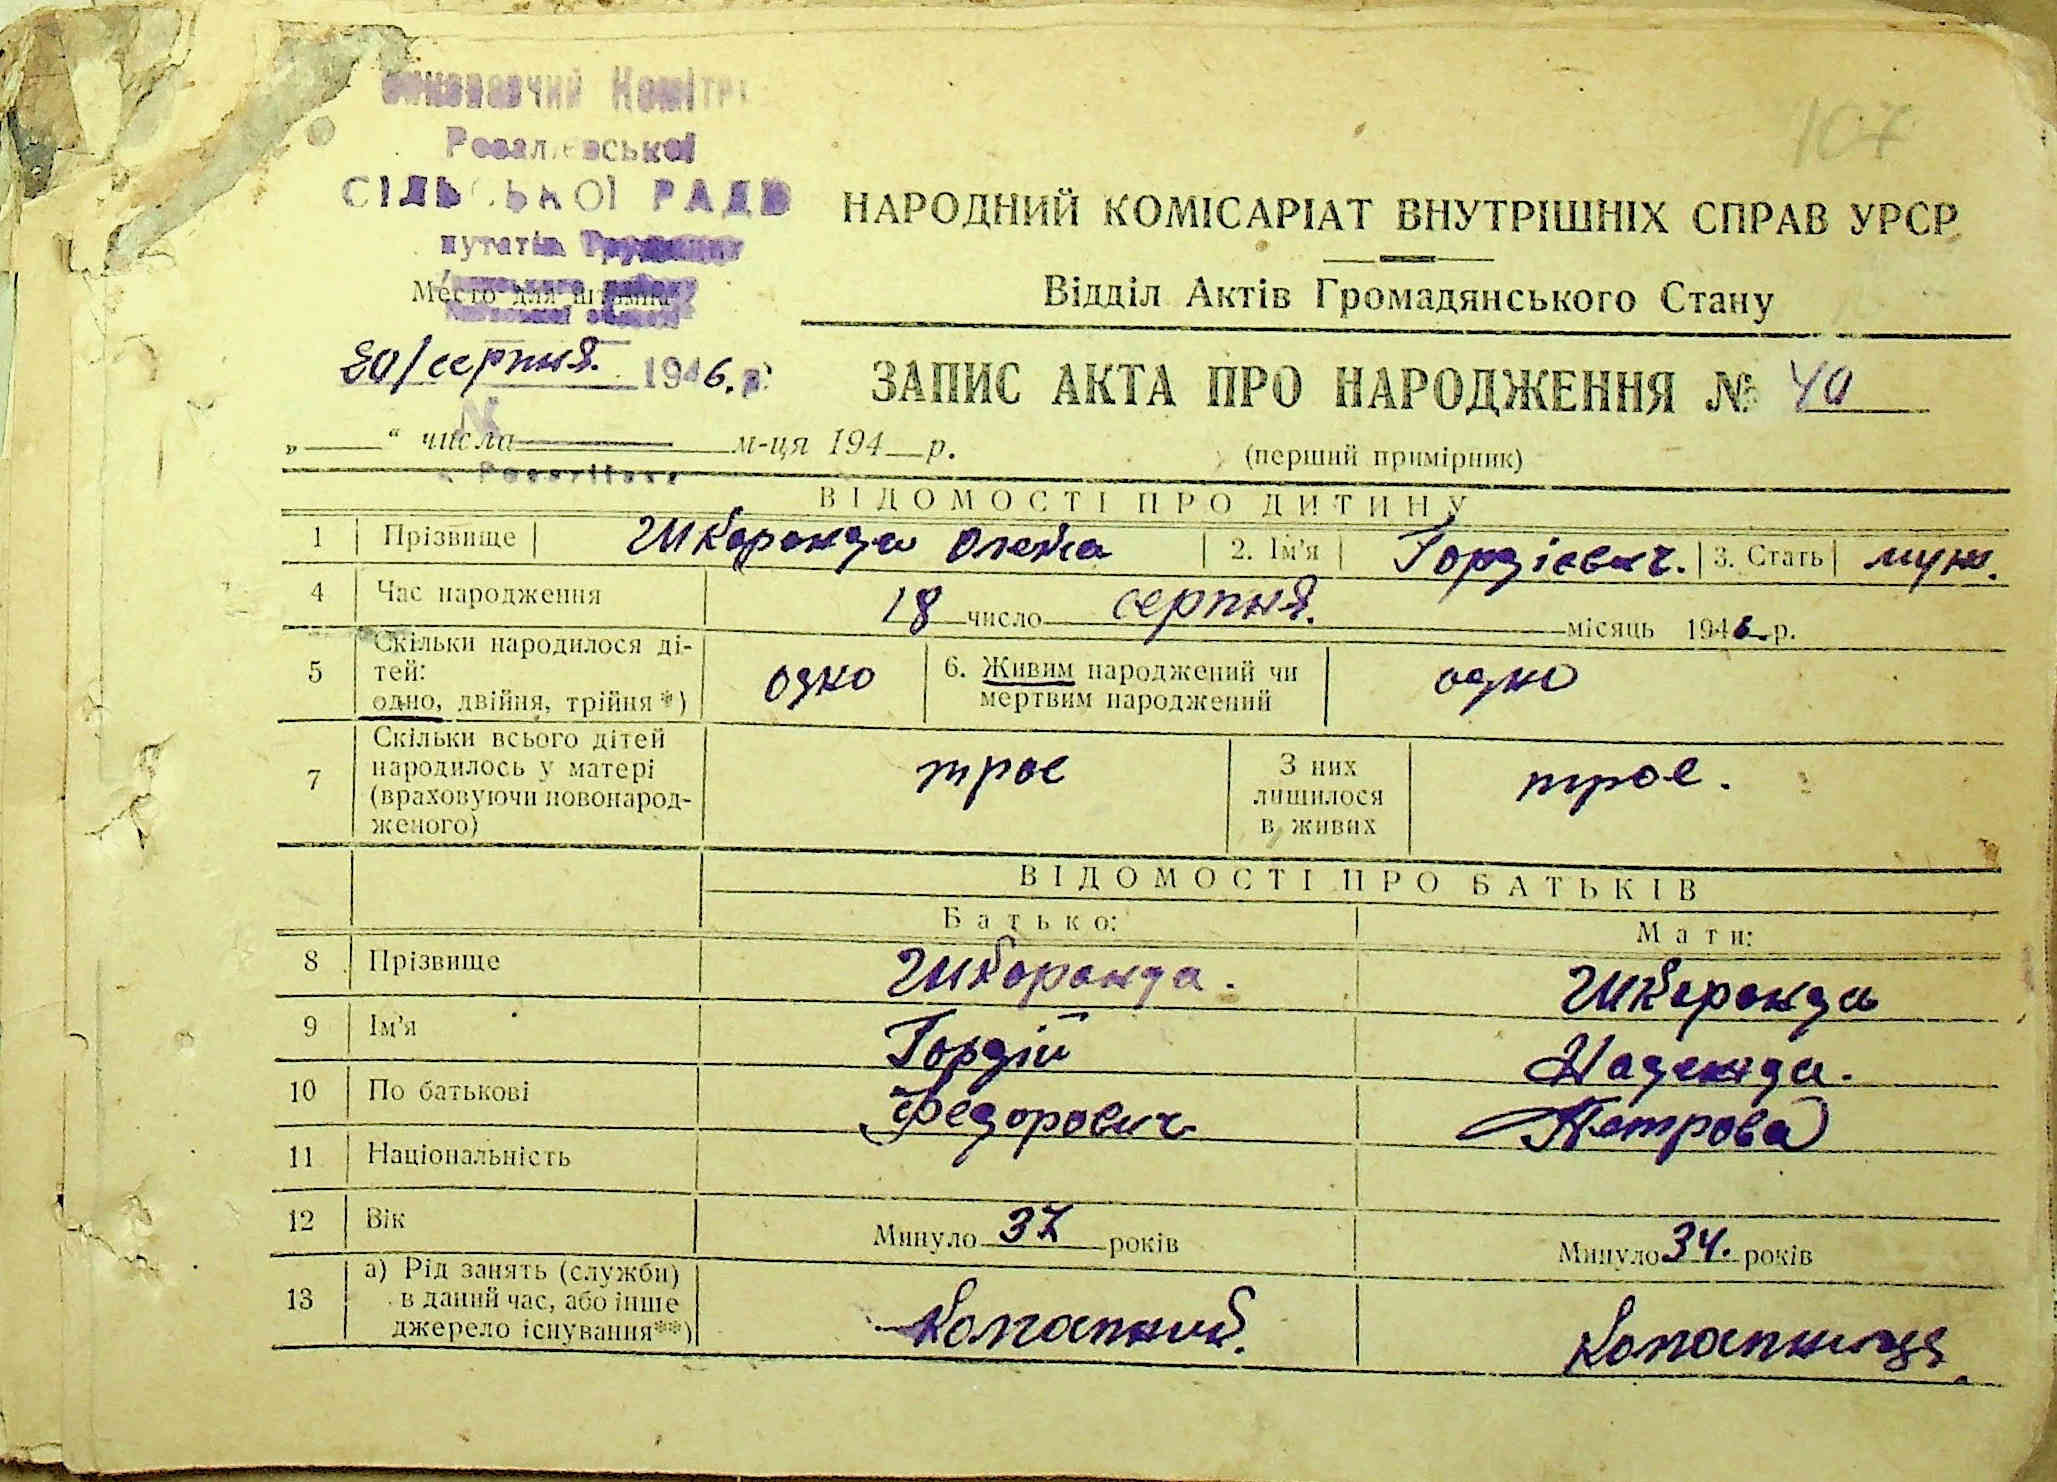 107
Виконавчий Коміте
СІЛЬСЬКОЇ РАДИ
НАРОДНИЙ КОМІСАРІАТ ВНУТРІШНІХ СПРАВ УРСР
Место для штампа
Відділ Актів Громадянського Стану
20/серпня. 1946. р.
ЗАПИС АКТА ПРО НАРОДЖЕННЯ № 40
„ “ числа м-ця 194 р.
(перший примірник)
ВІДОМОСТІ ПРО ДИТИНУ
1 Прізвище Шкаранда Олекса 2. Ім'я Гордієвич. 3. Стать муж.
4 Час народження 18 число серпня. місяць 1946 р.
5 Скільки народилося ді-
тей:
одно, двійня, трійня*) одно 6. Живим народжений чи
мертвим народжений одно
7 Скільки всього дітей
народилось у матері
(враховуючи новонарод-
женого) троє З них
лишилося
в живих троє.
ВІДОМОСТІ ПРО БАТЬКІВ
Батько: Мати:
8 Прізвище Шкаранда. Шкаранда
9 Ім'я Гордій Надежда.
10 По батькові Федорович Петрова
11 Національність
12 Вік Минуло 37 років Минуло 34. років
13 а) Рід занять (служби)
в даний час, або інше
джерело існування**) Колгоспник. Колгоспниця.